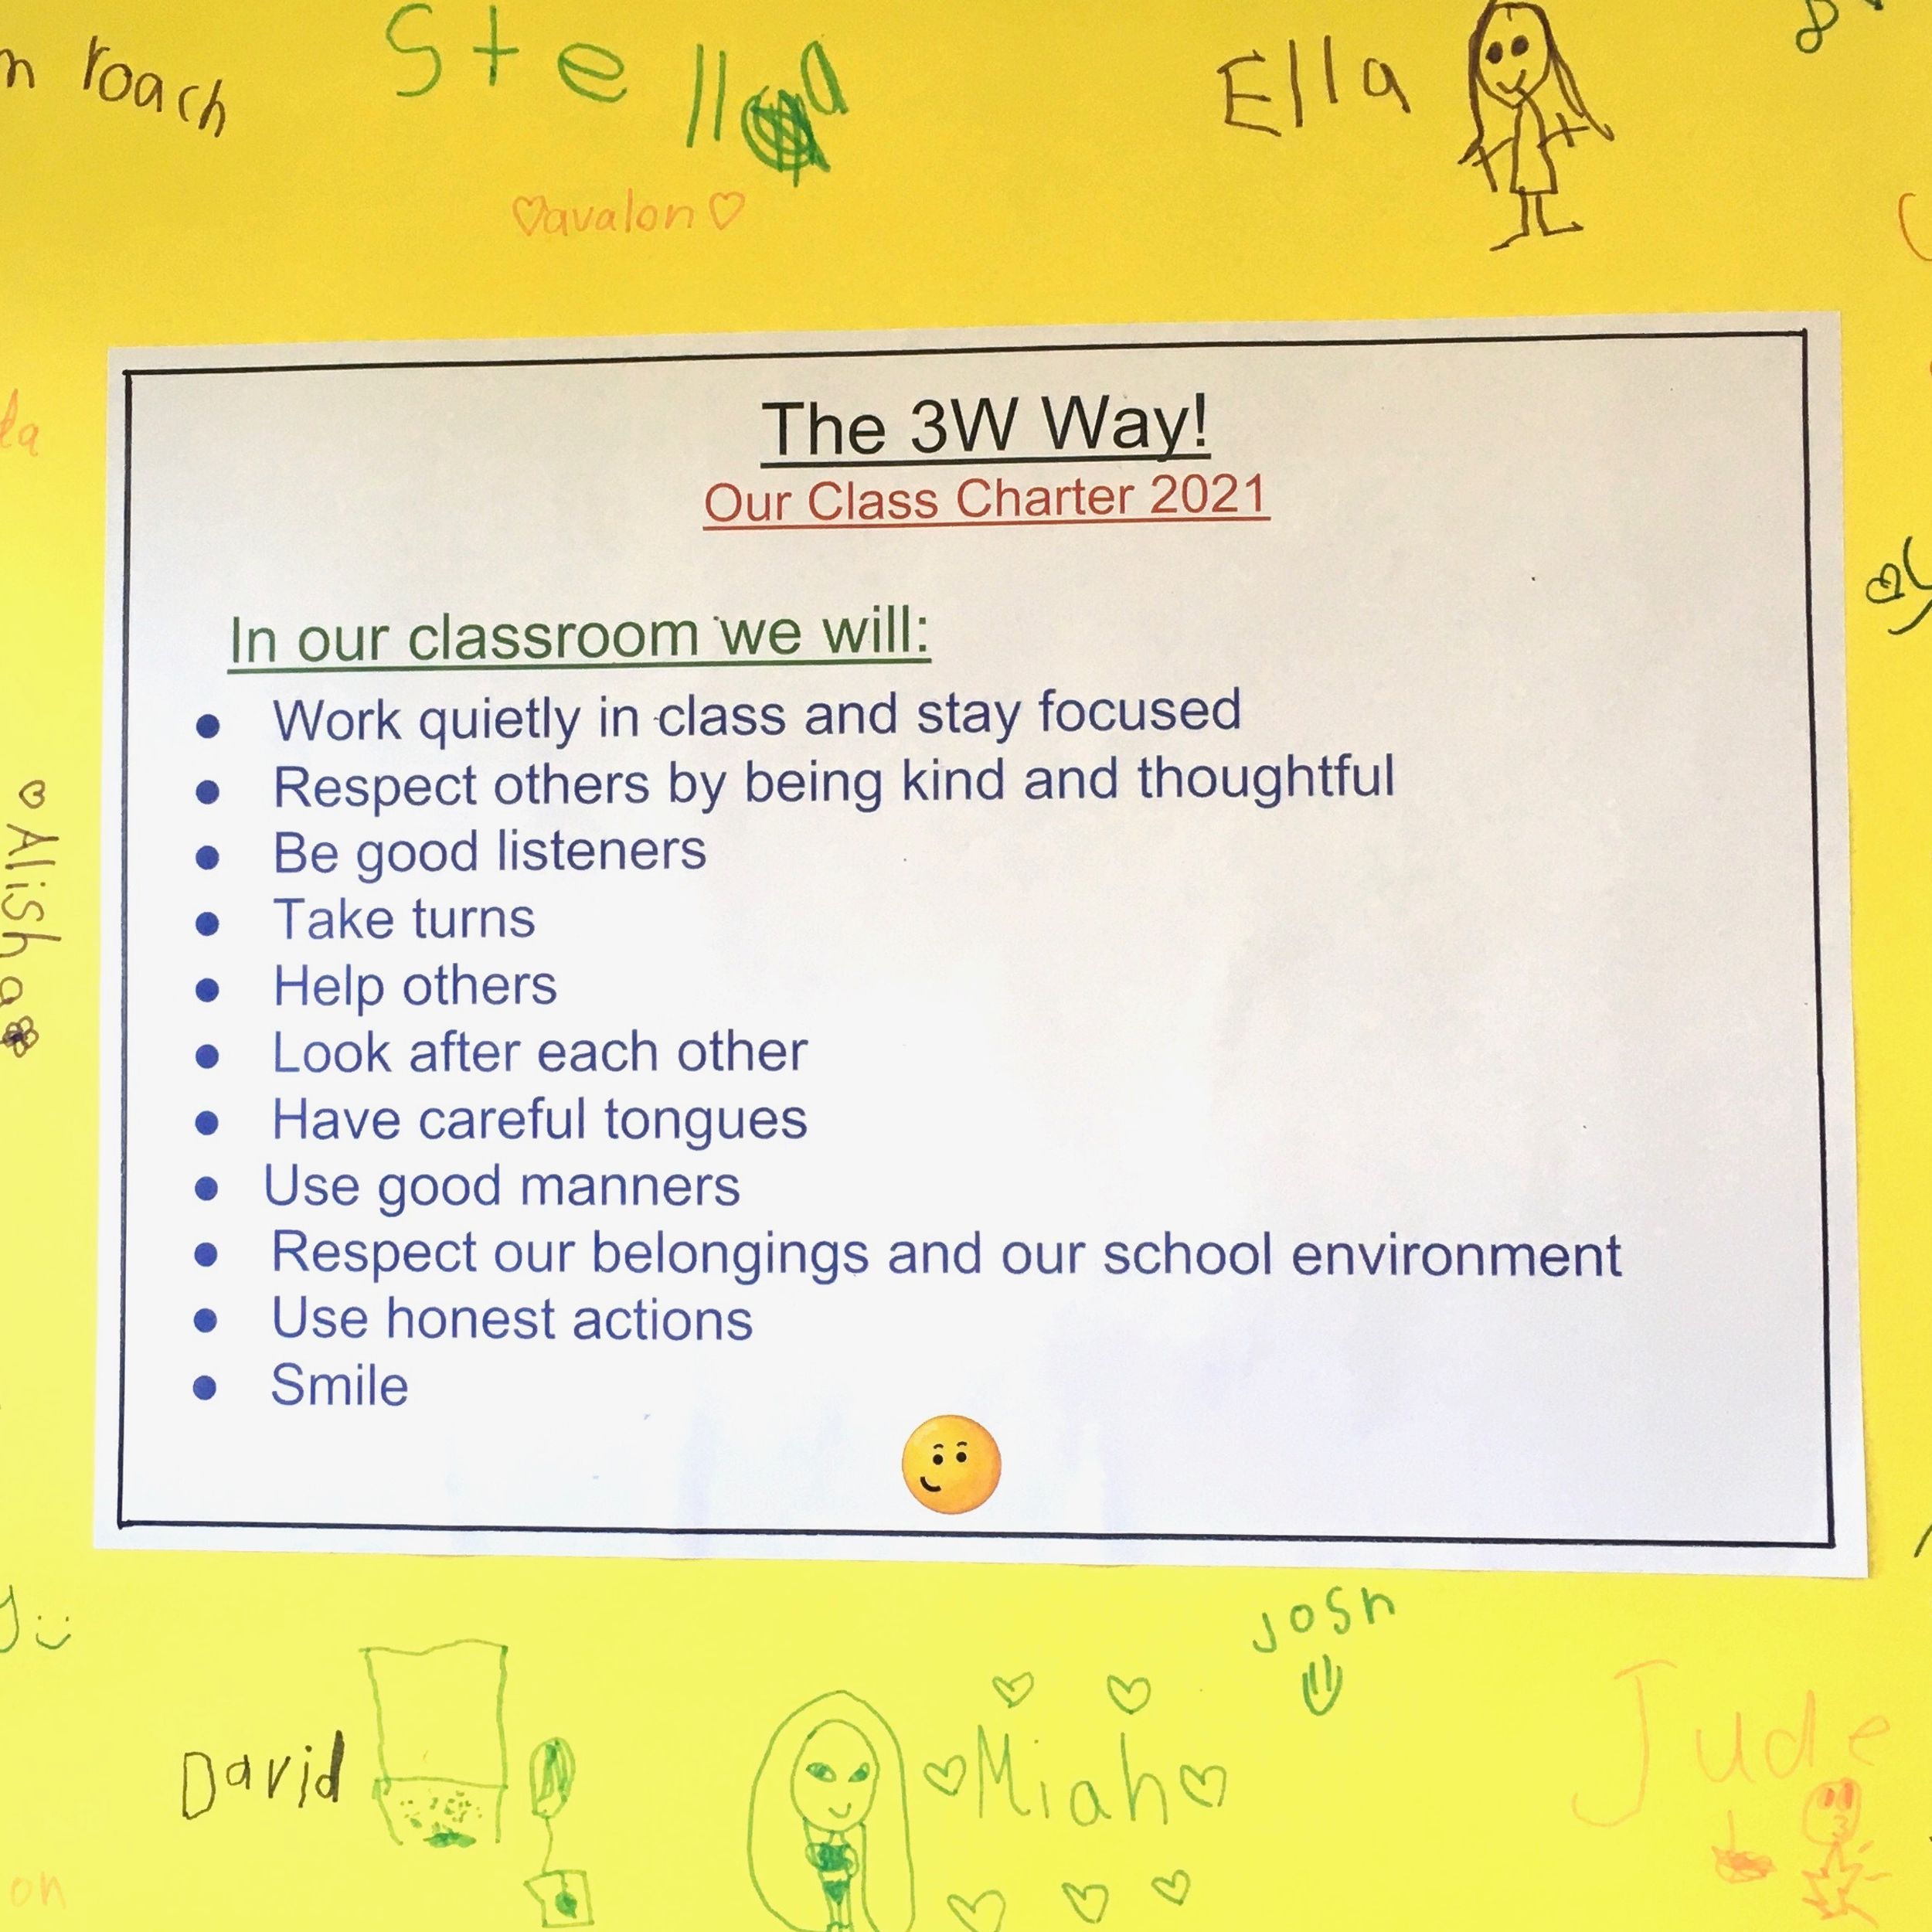 roach
Stella
Ella
♡avalon♡
The 3W Way!
Our Class Charter 2021
In our classroom we will:
● Work quietly in class and stay focused
● Respect others by being kind and thoughtful
● Be good listeners
● Take turns
● Help others
● Look after each other
● Have careful tongues
● Use good manners
● Respect our belongings and our school environment
● Use honest actions
● Smile
♡ Alisha
Josh
David
♡Miah♡
Jude